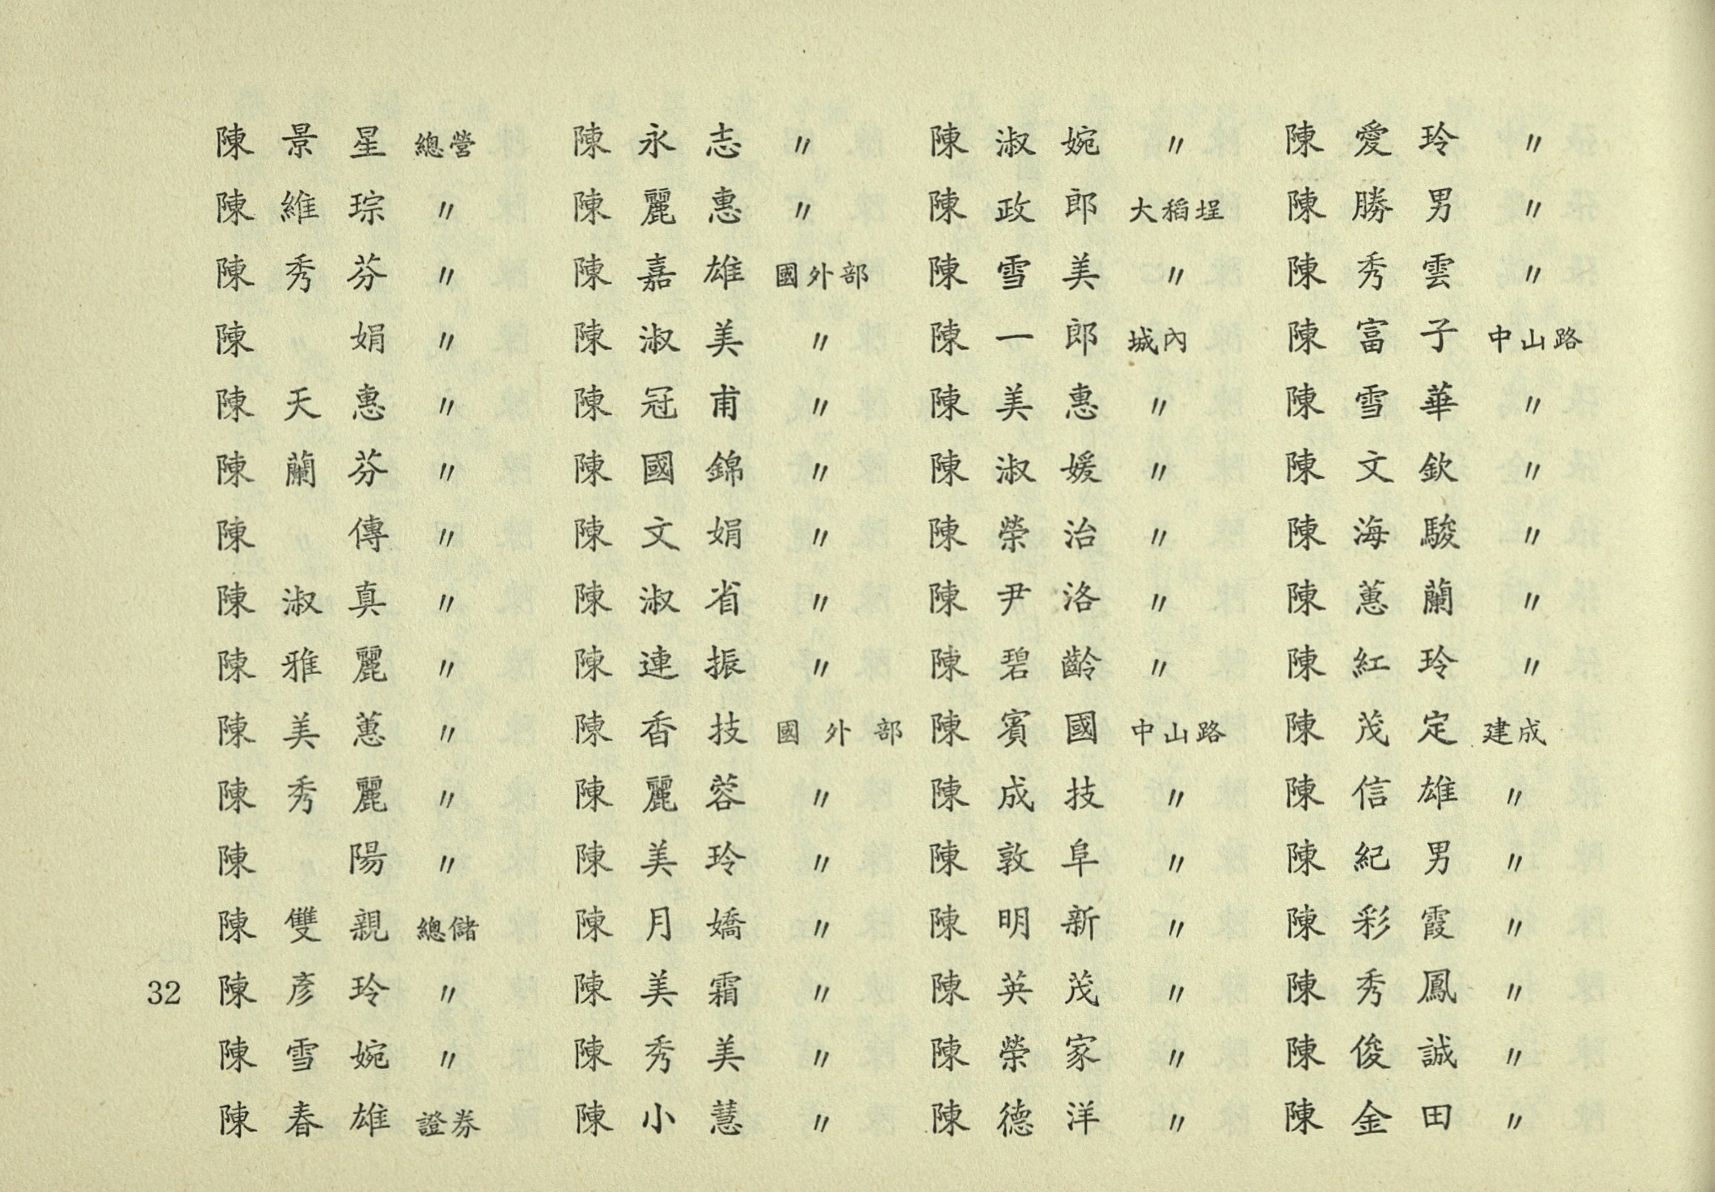 陳景星 總營
陳維琮 〃
陳秀芬 〃
陳　娟 〃
陳天惠 〃
陳蘭芬 〃
陳　傳 〃
陳淑真 〃
陳雅麗 〃
陳美蕙 〃
陳秀麗 〃
陳　陽 〃
陳雙親 總儲
陳彥玲 〃
陳雪婉 〃
陳春雄 證券
陳永志 〃
陳麗惠 〃
陳嘉雄 國外部
陳淑美 〃
陳冠甫 〃
陳國錦 〃
陳文娟 〃
陳淑省 〃
陳連振 〃
陳香技 國外部
陳麗蓉 〃
陳美玲 〃
陳月嬌 〃
陳美霜 〃
陳秀美 〃
陳小慧 〃
陳淑婉 〃
陳政郎 大稻埕
陳雪美 〃
陳一郎 城內
陳美惠 〃
陳淑媛 〃
陳榮治 〃
陳尹洛 〃
陳碧齡 〃
陳賓國 中山路
陳成技 〃
陳敦阜 〃
陳明新 〃
陳英茂 〃
陳榮家 〃
陳德洋 〃
陳愛玲 〃
陳勝男 〃
陳秀雲 〃
陳富子 中山路
陳雪華 〃
陳文欽 〃
陳海駿 〃
陳蕙蘭 〃
陳紅玲 〃
陳茂定 建成
陳信雄 〃
陳紀男 〃
陳彩霞 〃
陳秀鳳 〃
陳俊誠 〃
陳金田 〃
32